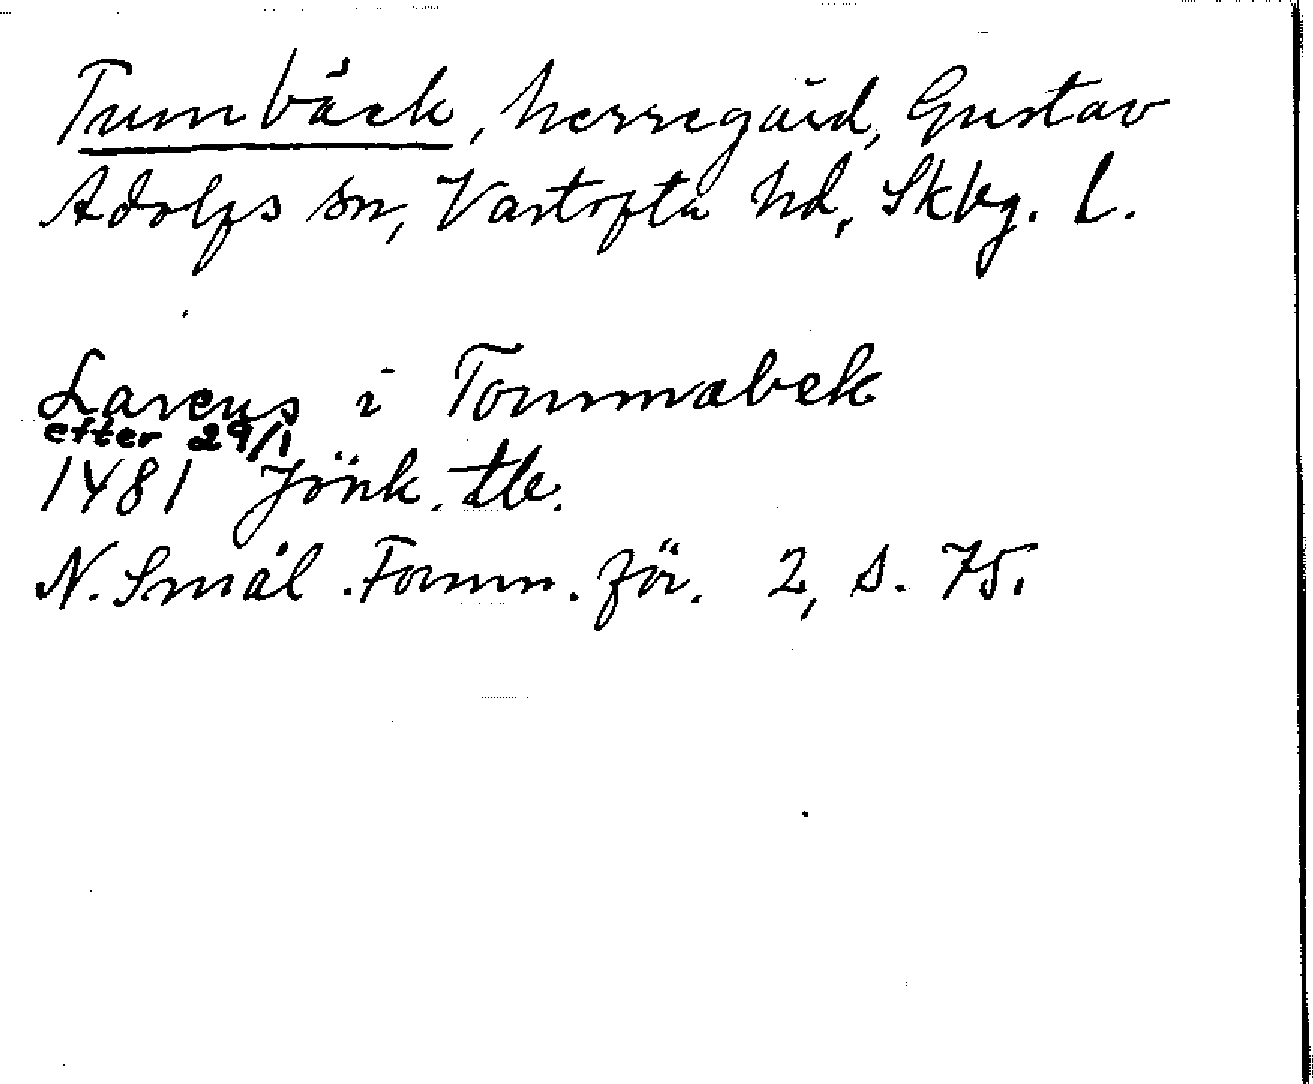 Tumbäck, herregård, Gustav
Adolfs sn, Vartofta hd, Skbg. L.
Larens i Tommabek
efter 29/1
1481 Jönk. tb.
N. Smål. Fornm. för. 2, s. 75.